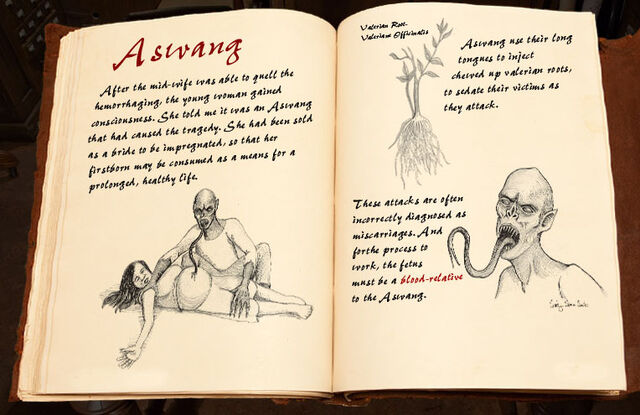 Aswang
After the mid-wife was able to quell the
hemorrhaging, the young woman gained
consciousness. She told me it was an Aswang
that had caused the tragedy. She had been sold
as a bride to be impregnated, so that her
firstborn may be consumed as a means for a
prolonged, healthy life.
Valerian Root-
Valeriane Officinalis
Aswang use their long
tongues to inject
chewed up valerian roots,
to sedate their victims as
they attack.
These attacks are often
incorrectly diagnosed as
miscarriages. And
forthe process to
work, the fetus
must be a blood-relative
to the Aswang.